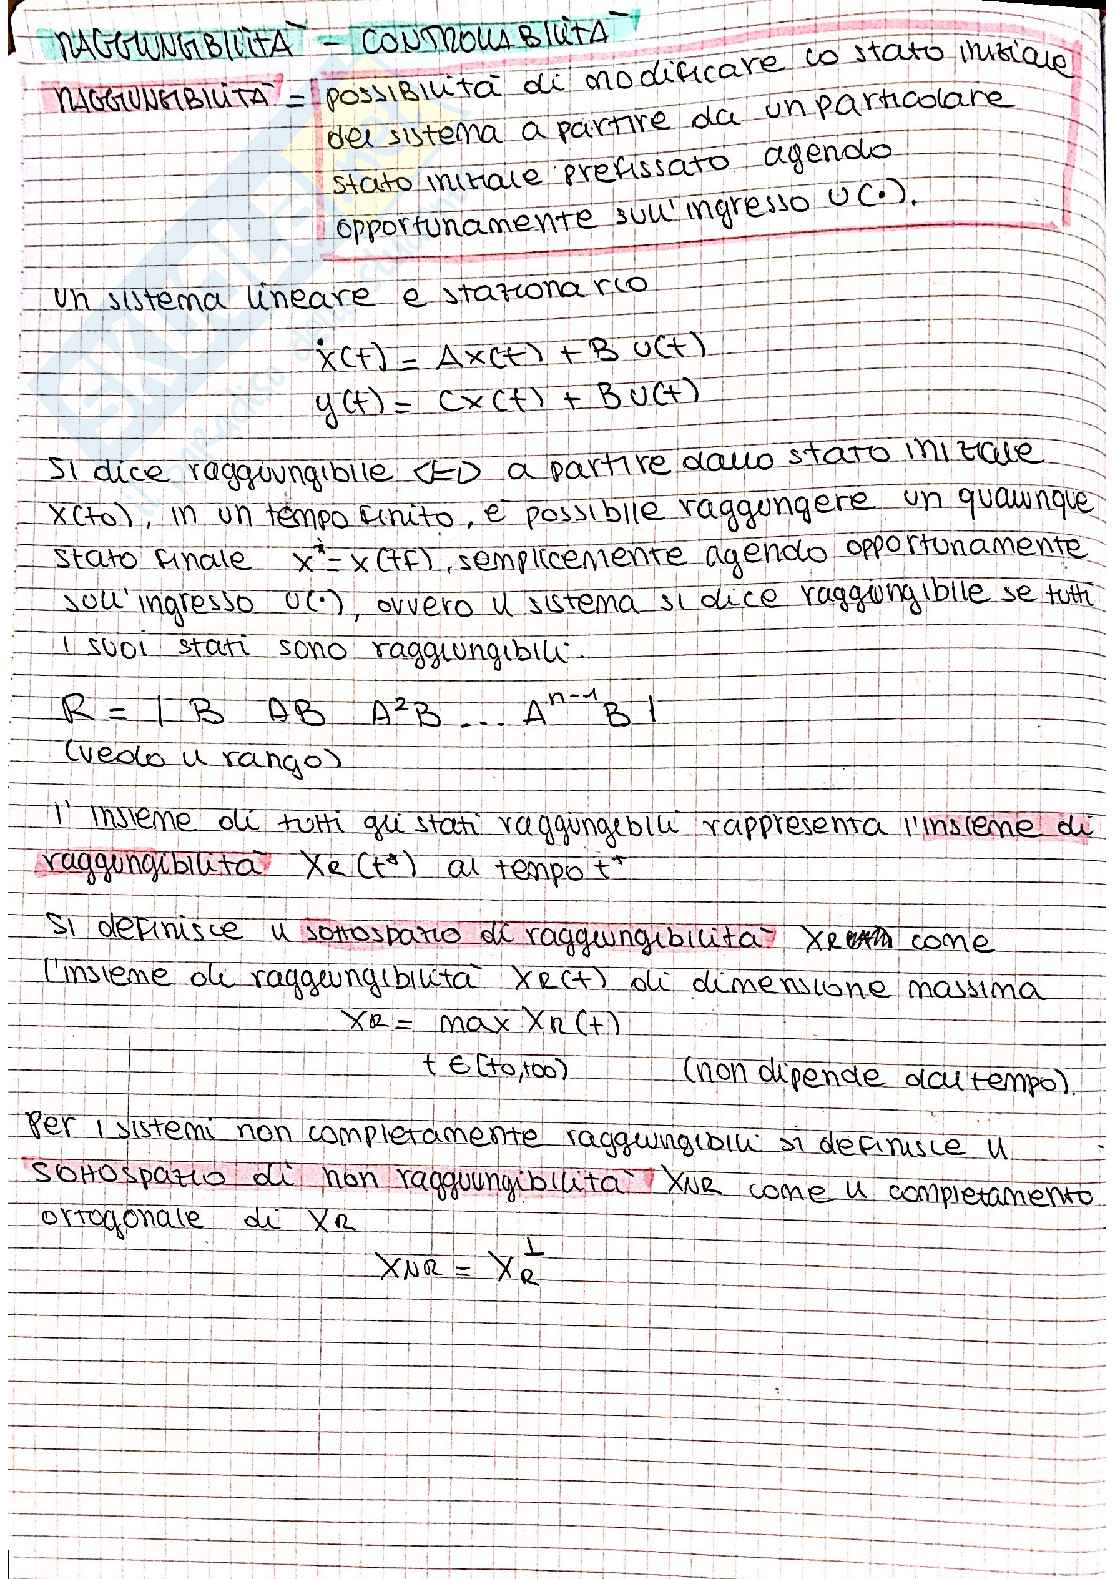 RAGGIUNGIBILITÀ - CONTROLLABILITÀ
RAGGIUNGIBILITÀ = possibilità di modificare lo stato iniziale
del sistema a partire da un particolare
stato iniziale prefissato agendo
opportunamente sull'ingresso U(•).
Un sistema lineare e stazionario
ẋ(t) = Ax(t) + B U(t)
y(t) = Cx(t) + B U(t)
Si dice raggiungibile <=> a partire dallo stato iniziale
x(t0), in un tempo finito, è possibile raggiungere un qualunque
stato finale x* = x(tf), semplicemente agendo opportunamente
sull'ingresso U(•), ovvero il sistema si dice raggiungibile se tutti
i suoi stati sono raggiungibili.
R = | B AB A²B ... Aⁿ⁻¹B |
(vedo il rango)
l'insieme di tutti gli stati raggiungibili rappresenta l'insieme di
raggiungibilità XR(t*) al tempo t*
Si definisce il sottospazio di raggiungibilità XR come
l'insieme di raggiungibilità XR(t) di dimensione massima
XR = max XR(t)
t ∈ [t0,+∞) (non dipende dal tempo).
Per i sistemi non completamente raggiungibili si definisce il
sottospazio di non raggiungibilità XNR come il completamento
ortogonale di XR
XNR = XR⊥